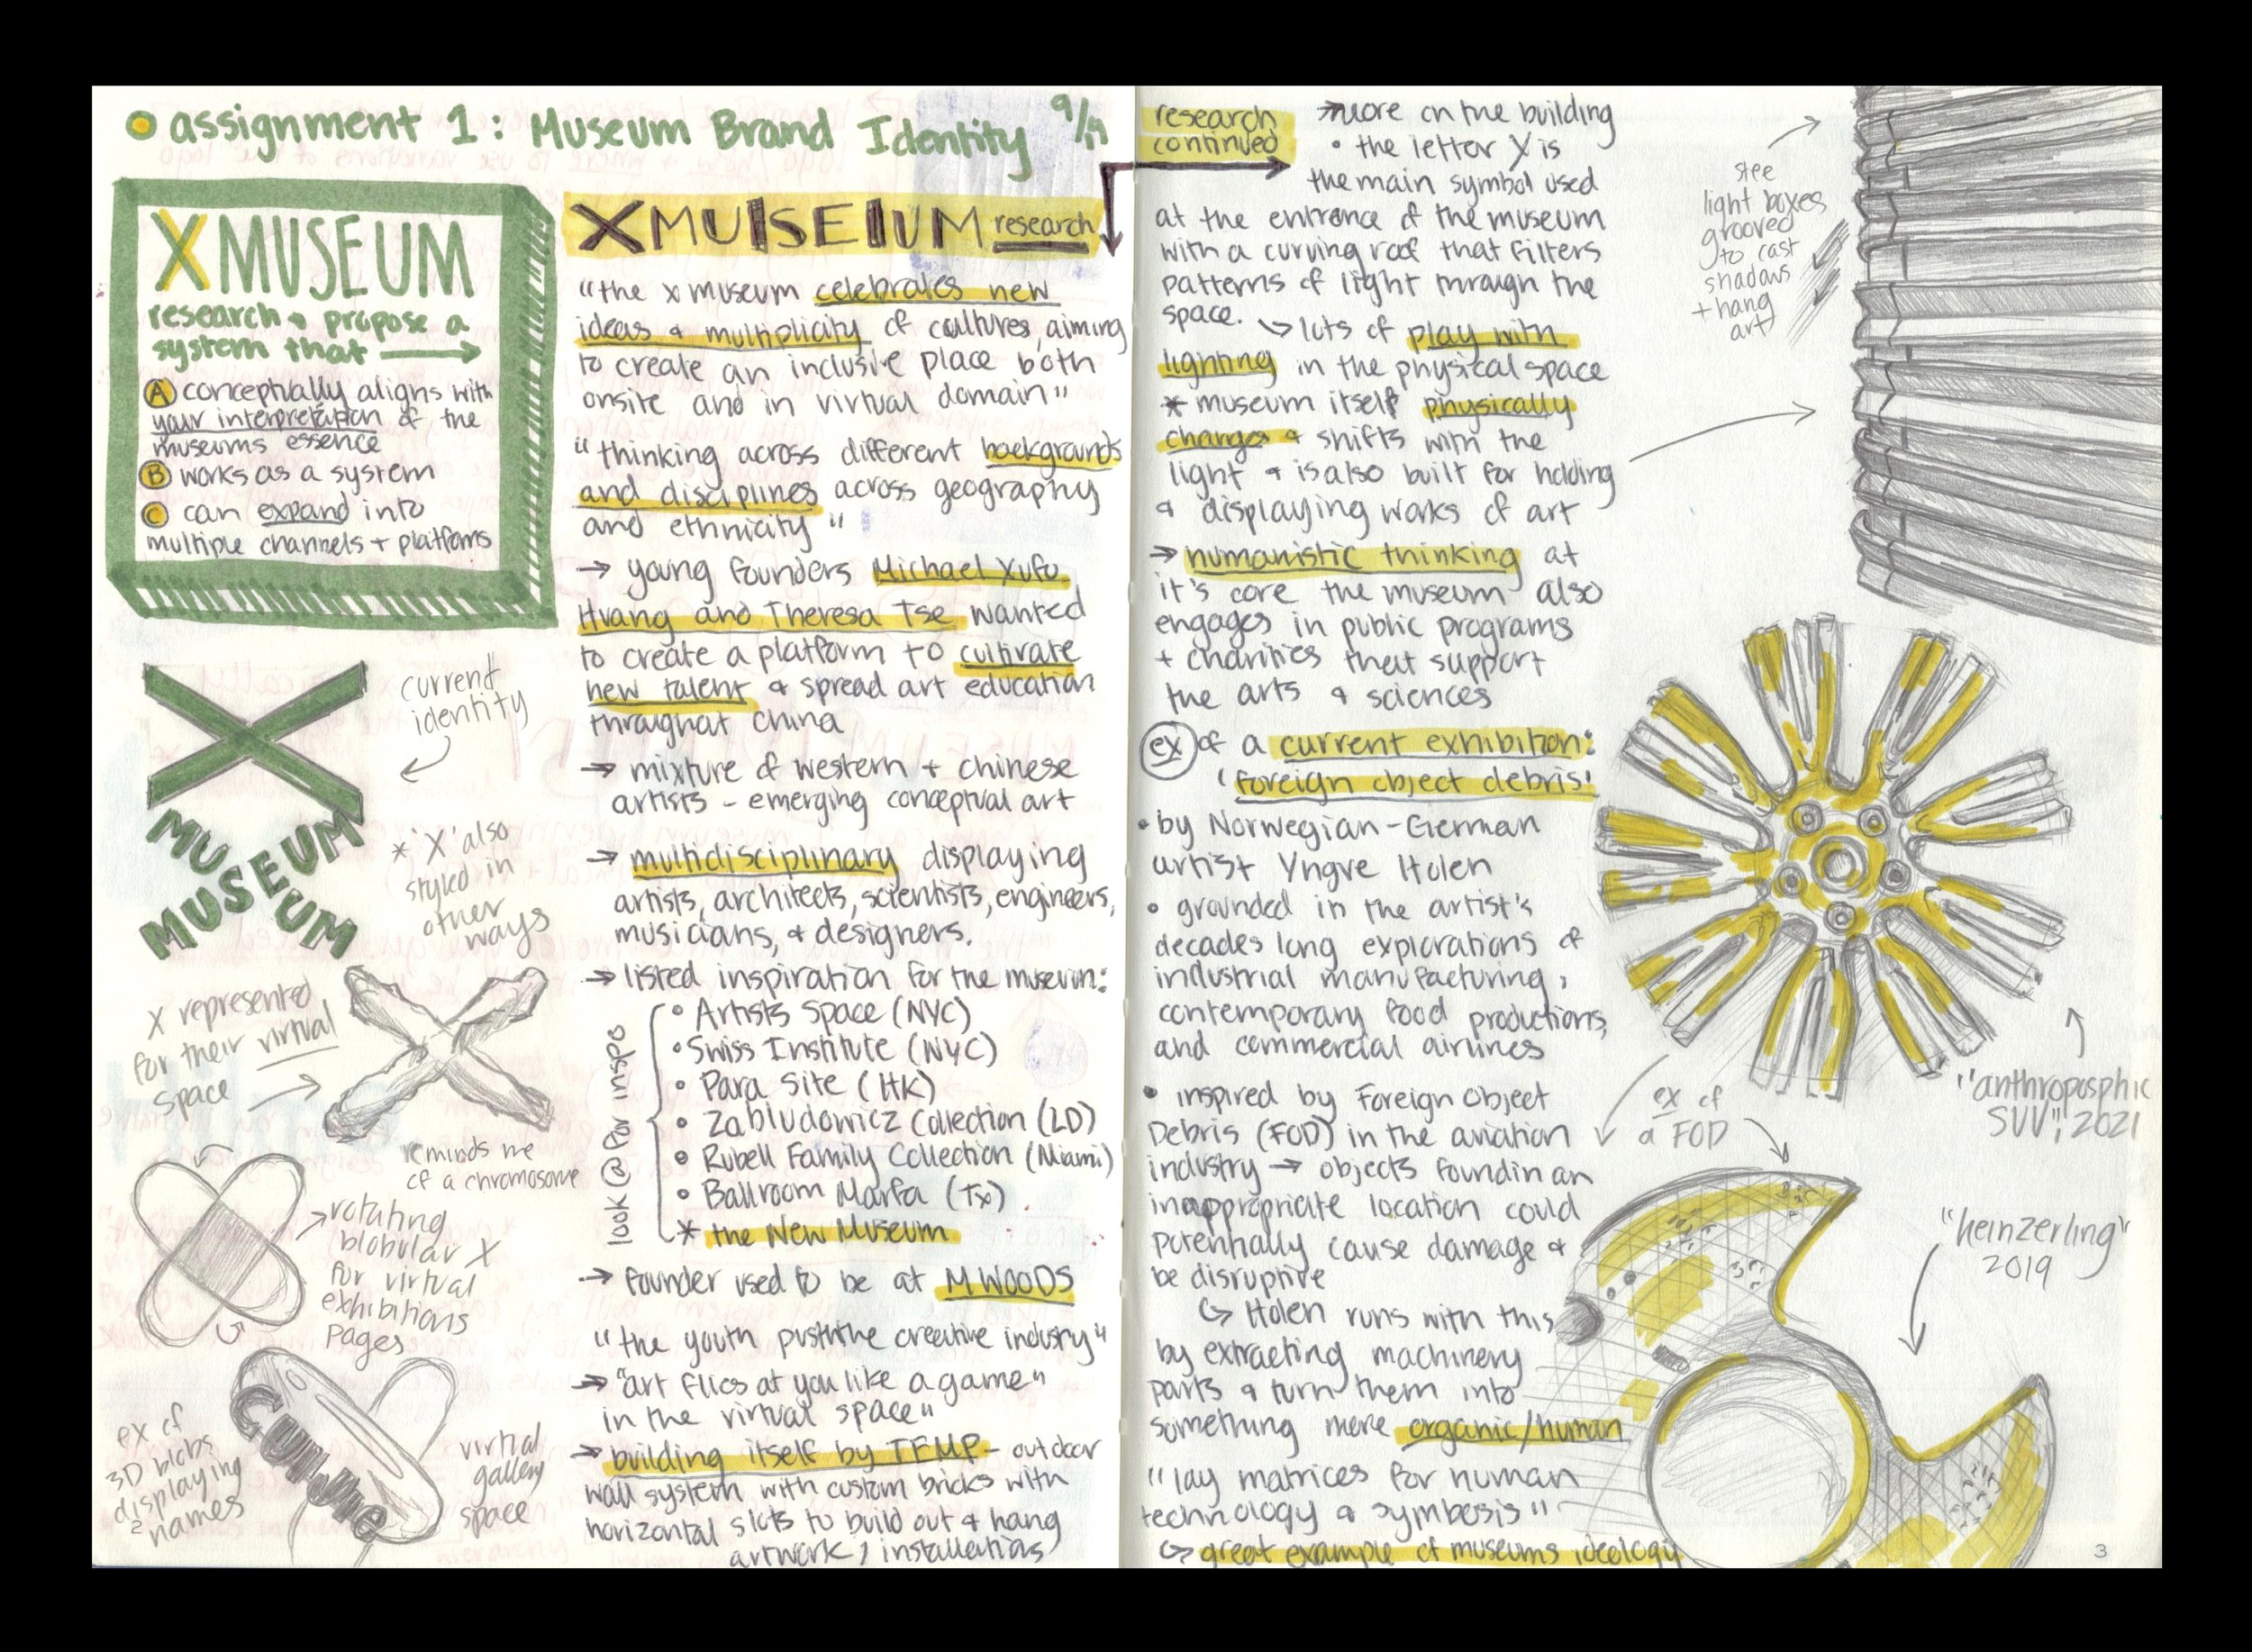 assignment 1: Museum Brand Identity 9/14
X MUSEUM
research + propose a
system that →
A conceptually aligns with
your interpretation of the
museums essence
B works as a system
C can expand into
multiple channels + platforms
current
identity
MU
MUSEUM
MUSEUM
* 'X' also
styled in
other
ways
X represented
for their virtual
space
reminds me
of a chromosome
rotating
blobular X
for virtual
exhibitions
pages
ex of
3D blobs
displaying
names
virtual
gallery
space
XMUSEUM research
"the x museum celebrates new
ideas & multiplicity of cultures, aiming
to create an inclusive place both
onsite and in virtual domain"
"thinking across different backgrounds
and disciplines across geography
and ethnicity"
→ young founders Michael Xufu
Huang and Theresa Tse wanted
to create a platform to cultivate
new talent & spread art education
throughout china
→ mixture of western + chinese
artists - emerging conceptual art
→ multidisciplinary displaying
artists, architects, scientists, engineers,
musicians, & designers.
→ listed inspiration for the museum:
look @ for inspo
• Artists Space (NYC)
• Swiss Institute (NYC)
• Para Site (HK)
• Zabludowicz Collection (LD)
• Rubell Family Collection (Miami)
• Ballroom Marfa (TX)
* the New Museum
→ founder used to be at M WOODS
"the youth push the creative industry"
→ "art flies at you like a game"
in the virtual space"
→ building itself by TEMP - outdoor
wall system with custom bricks with
horizontal slots to build out & hang
artwork, installations
research
continued
→ more on the building
• the letter X is
the main symbol used
at the entrance of the museum
with a curving roof that filters
patterns of light through the
space. ↳ lots of play with
lighting in the physical space
* museum itself physically
changes & shifts with the
light & is also built for holding
& displaying works of art
→ humanistic thinking at
it's core the museum also
engages in public programs
+ charities that support
the arts & sciences
ex of a current exhibition:
'foreign object debris'
• by Norwegian-German
artist Yngve Holen
• grounded in the artist's
decades long explorations of
industrial manufacturing,
contemporary food productions,
and commercial airlines
• inspired by Foreign Object
Debris (FOD) in the aviation
industry → objects found in an
inappropriate location could
potentially cause damage &
be disruptive
↳ Holen runs with this
by extracting machinery
parts & turn them into
something more organic/human
"lay matrices for human
technology & symbosis"
↳ great example of museums ideology
light boxes
grooved
to cast
shadows
+ hang
art
"anthroposphic
SUV", 2021
ex of
a FOD
"heinzerling"
2019
3